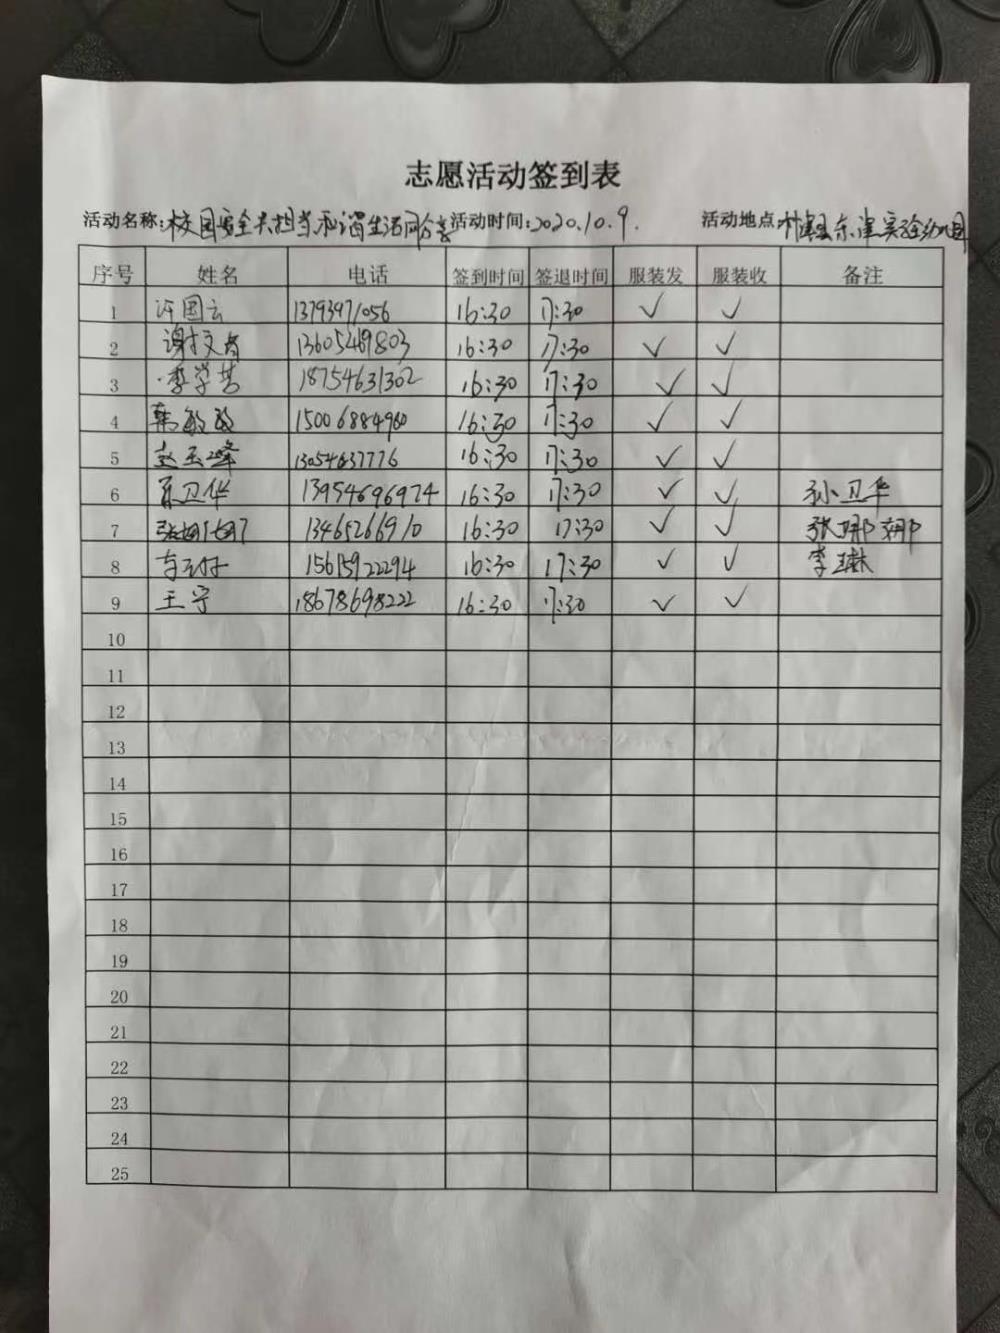 志愿活动签到表
活动名称:校园安全共担当和谐生活同分享 活动时间:2020.10.9. 活动地点 利津县东津实验幼儿园
序号 姓名 电话 签到时间 签退时间 服装发 服装收 备注
1 许国云 13793971056 16:30 17:30 ✓ ✓
2 谢 13605469803 16:30 17:30 ✓ ✓
3 李学芸 18754631302 16:30 17:30 ✓ ✓
4 韩敏敏 15006884960 16:30 17:30 ✓ ✓
5 赵玉峰 13054637776 16:30 17:30 ✓ ✓
6 孙卫华 13954696974 16:30 17:30 ✓ ✓ 孙卫华
7 张娜娜 13465266910 16:30 17:30 ✓ ✓ 张娜娜
8 15615922294 16:30 17:30 ✓ ✓ 李琳
9 王宁 18678698222 16:30 17:30 ✓ ✓
10
11
12
13
14
15
16
17
18
19
20
21
22
23
24
25